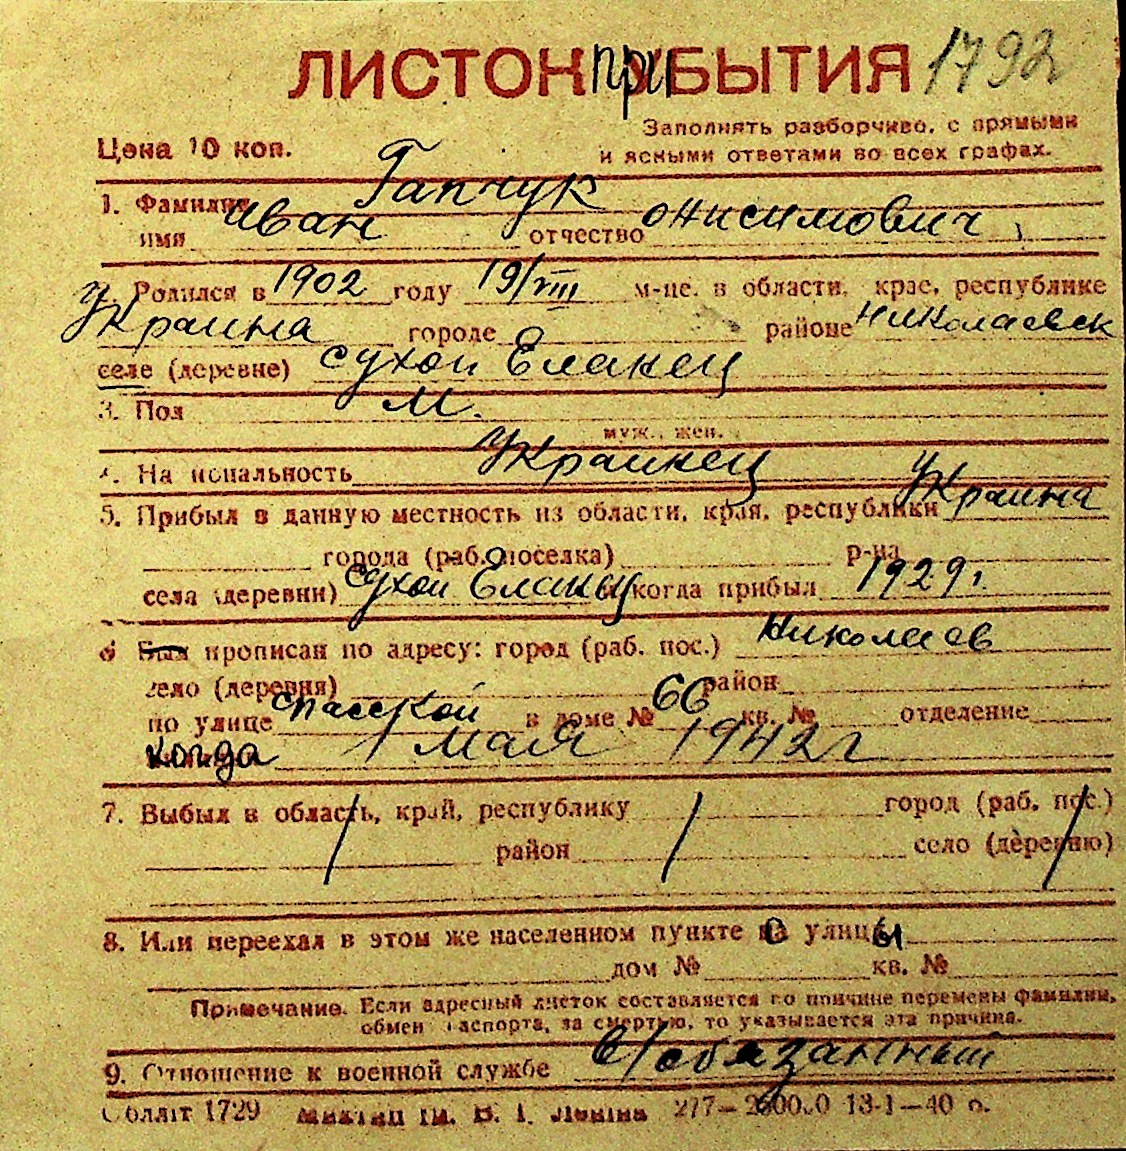 ЛИСТОК ПРИБЫТИЯ 1792
Цена 10 коп.
Заполнять разборчиво, с прямыми
и ясными ответами во всех графах.
1. Фамилия Гапчук
имя Иван отчество Онисимович
Родился в 1902 году 19/VIII м-це. в области, крае, республике
Украина городе районе Николаевск
селе (деревне) Сухой Еланец
3. Пол М.
муж., жен.
4. Национальность Украинец
5. Прибыл в данную местность из области, края, республики Украина
города (раб. поселка) р-на
села (деревни) Сухой Еланец когда прибыл 1929 г.
6 Был прописан по адресу: город (раб. пос.) Николаев
село (деревня) район
по улице Спасской в доме № 66 кв. № отделение
когда 1 мая 1942 г
7. Выбыл в область, край, республику город (раб. пос.)
район село (деревню)
8. Или переехал в этом же населенном пункте с улицы
дом № кв. №
Примечание. Если адресный листок составляется по причине перемены фамилии,
обмен паспорта, за смертью, то указывается эта причина.
9. Отношение к военной службе в/обязанный
Облліт 1729 ім. В. І. Леніна 277— 13-1—40 р.